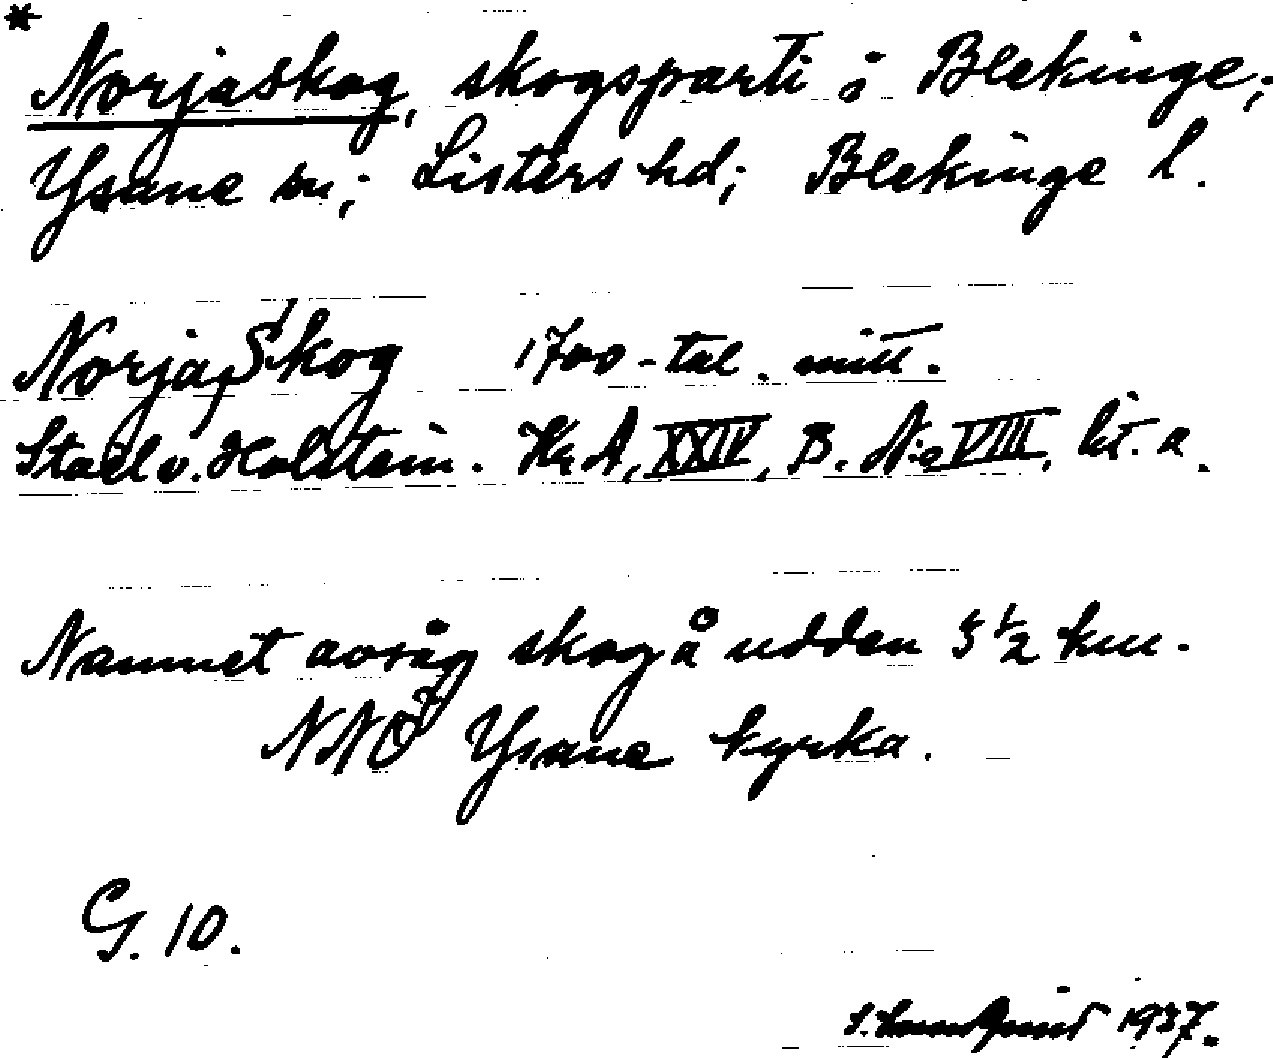 *
Norjaskog, skogsparti i Blekinge;
Ysane sn; Listers hd; Blekinge l.
Norja, Skog 1700-tal. mitt.
Stael v. Holstein. Kr A, XXIV, B. No VIII, lit. a.
Namnet avsåg skog å udden 3 1/2 km.
NNÖ Ysane kyrka.
G. 10.
1937.